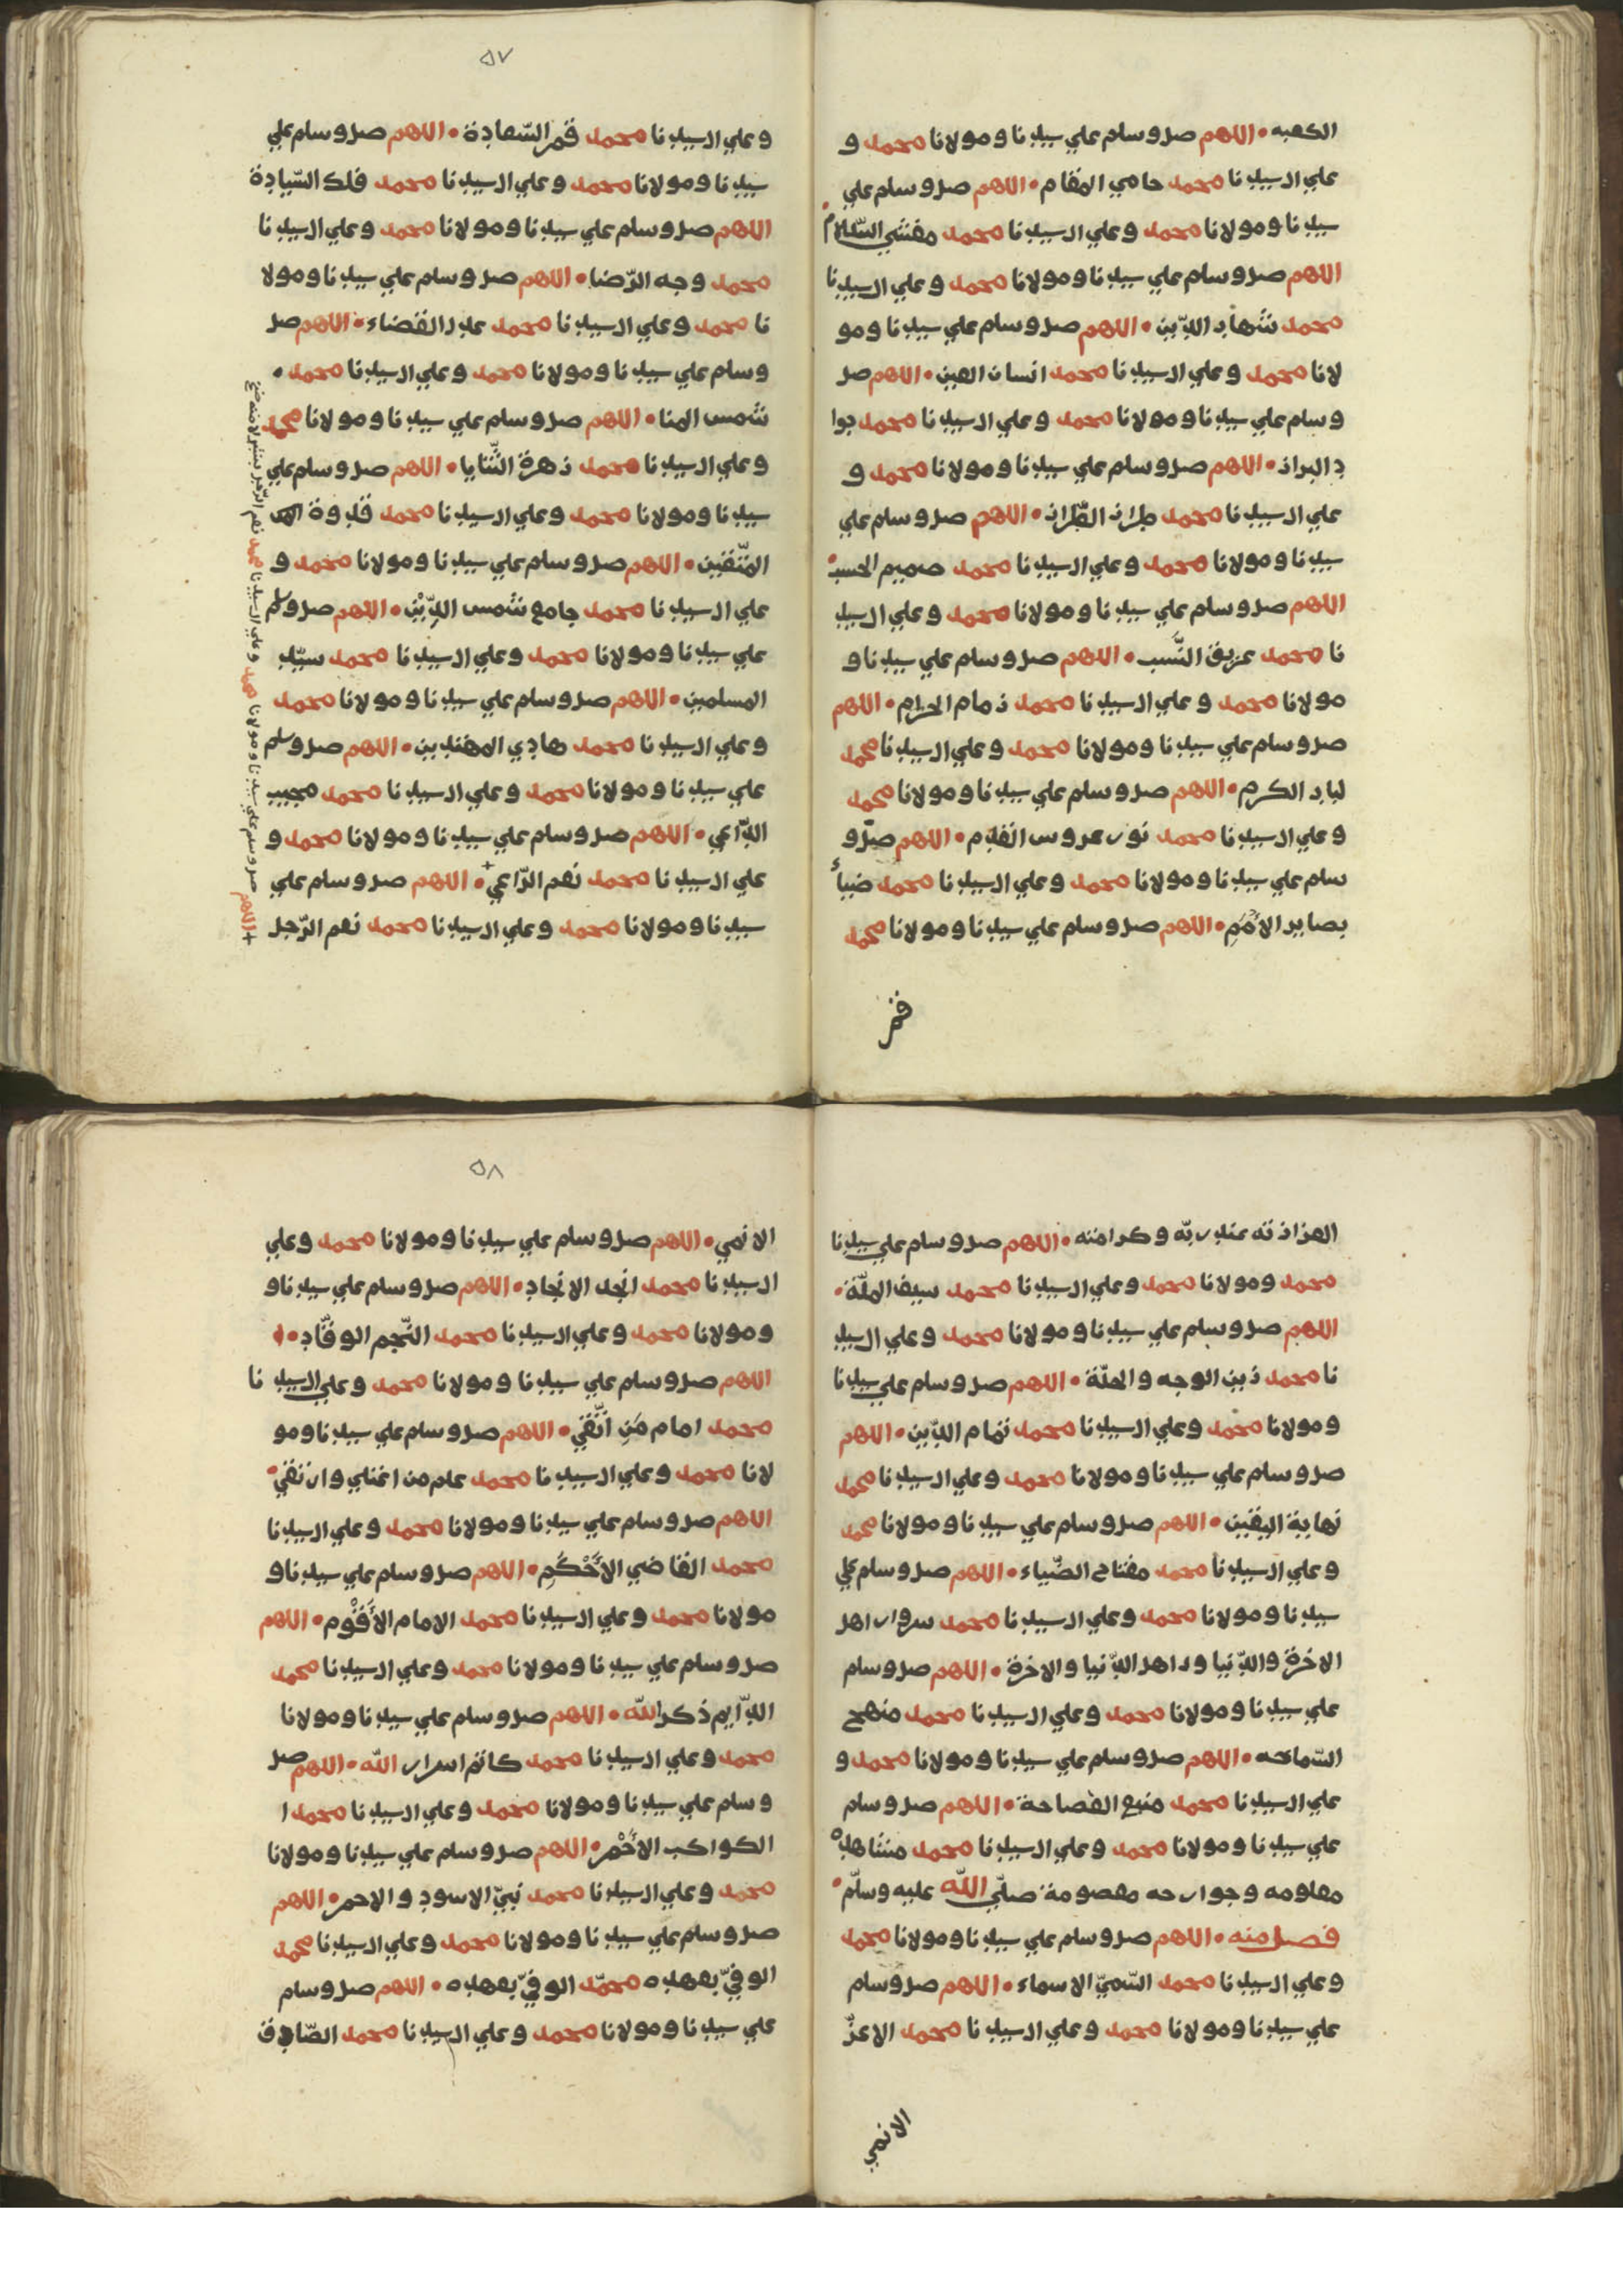 الكعبه • اللهم صل وسلم علي سيدنا ومولانا محمد و
علي ال سيدنا محمد حامي المقام • اللهم صل وسلم علي
سيدنا ومولانا محمد وعلي ال سيدنا محمد مفشي السّلام •
اللهم صل وسلم علي سيدنا ومولانا محمد وعلي ال سيدنا
محمد شهاب الدّين • اللهم صل وسلم علي سيدنا ومو
لانا محمد وعلي ال سيدنا محمد انسان العين • اللهم صل
وسلم علي سيدنا ومولانا محمد وعلي ال سيدنا محمد جوا
د البراز • اللهم صل وسلم علي سيدنا ومولانا محمد و
علي ال سيدنا محمد طراز الطّراز • اللهم صل وسلم علي
سيدنا ومولانا محمد وعلي ال سيدنا محمد صميم الحسب •
اللهم صل وسلم علي سيدنا ومولانا محمد وعلي ال سيد
نا محمد عريق النّسب • اللهم صل وسلم علي سيدنا و
مولانا محمد وعلي ال سيدنا محمد زمام الحرام • اللهم
صل وسلم علي سيدنا ومولانا محمد وعلي ال سيدنا محمد
لباب الكرم • اللهم صل وسلم علي سيدنا ومولانا محمد
وعلي ال سيدنا محمد نور عروس القدم • اللهم صلّ و
سلم علي سيدنا ومولانا محمد وعلي ال سيدنا محمد ضياء
بصاير الأمم • اللهم صل وسلم علي سيدنا ومولانا محمد
قمر
٥٧
وعلي ال سيدنا محمد قمر السّعادة • اللهم صل وسلم علي
سيدنا ومولانا محمد وعلي ال سيدنا محمد فلك السّيادة
اللهم صل وسلم علي سيدنا ومولانا محمد وعلي ال سيدنا
محمد وجه الرّضا • اللهم صل وسلم علي سيدنا ومولا
نا محمد وعلي ال سيدنا محمد عدل القضاء • اللهم صل
وسلم علي سيدنا ومولانا محمد وعلي ال سيدنا محمد •
شمس المنا • اللهم صل وسلم علي سيدنا ومولانا محمد
وعلي ال سيدنا محمد زهرة الثّنايا • اللهم صل وسلم علي
سيدنا ومولانا محمد وعلي ال سيدنا محمد قدوة
المتّقين • اللهم صل وسلم علي سيدنا ومولانا محمد و
علي ال سيدنا محمد جامع شمس الدّين • اللهم صل وسلم
علي سيدنا ومولانا محمد وعلي ال سيدنا محمد سيّد
المسلمين • اللهم صل وسلم علي سيدنا ومولانا محمد
وعلي ال سيدنا محمد هادي المهتدين • اللهم صل وسلم
علي سيدنا ومولانا محمد وعلي ال سيدنا محمد مجيب
الدّاعي • اللهم صل وسلم علي سيدنا ومولانا محمد و
علي ال سيدنا محمد نعم الرّاعي + • اللهم صل وسلم علي
سيدنا ومولانا محمد وعلي ال سيدنا محمد نعم الرّجل
+ اللهم صل وسلم علي سيدنا ومولانا محمد وعلي ال سيدنا محمد نعم
الهزاز ته عند ربّه وكرامته • اللهم صل وسلم علي سيدنا
محمد ومولانا محمد وعلي ال سيدنا محمد سيف الملّة •
اللهم صل وسلم علي سيدنا ومولانا محمد وعلي ال سيد
نا محمد زين الوجه والحلّة • اللهم صل وسلم علي سيدنا
ومولانا محمد وعلي ال سيدنا محمد تمام الدّين • اللهم
صل وسلم علي سيدنا ومولانا محمد وعلي ال سيدنا محمد
نهاية اليقين • اللهم صل وسلم علي سيدنا ومولانا محمد
وعلي ال سيدنا محمد مفتاح الضّياء • اللهم صل وسلم علي
سيدنا ومولانا محمد وعلي ال سيدنا محمد سرور اهل
الاخرة والدّنيا و اهل الدّنيا والاخرة • اللهم صل وسلم
علي سيدنا ومولانا محمد وعلي ال سيدنا محمد منهج
السّماحه • اللهم صل وسلم علي سيدنا ومولانا محمد و
علي ال سيدنا محمد منبع الفصاحة • اللهم صل وسلم
علي سيدنا ومولانا محمد وعلي ال سيدنا محمد مشاهده
معلومه وجوارحه معصومة صلّي اللّه عليه وسلّم •
فصل منه • اللهم صل وسلم علي سيدنا ومولانا محمد
وعلي ال سيدنا محمد السّميّ الاسماء • اللهم صل وسلم
علي سيدنا ومولانا محمد وعلي ال سيدنا محمد الاعزّ
الانمي
٥٨
الانمي • اللهم صل وسلم علي سيدنا ومولانا محمد وعلي
ال سيدنا محمد انجد الانجاد • اللهم صل وسلم علي سيدنا و
ومولانا محمد وعلي ال سيدنا محمد النّجم الوقّاد •
اللهم صل وسلم علي سيدنا ومولانا محمد وعلي ال سيد نا
محمد امام من اتّقي • اللهم صل وسلم علي سيدنا ومو
لانا محمد وعلي ال سيدنا محمد علم من اعتلي وارتقي •
اللهم صل وسلم علي سيدنا ومولانا محمد وعلي ال سيدنا
محمد القاضي الأحكم • اللهم صل وسلم علي سيدنا و
مولانا محمد وعلي ال سيدنا محمد الامام الأقوم • اللهم
صل وسلم علي سيدنا ومولانا محمد وعلي ال سيدنا محمد
الدّايم ذكر اللّه • اللهم صل وسلم علي سيدنا ومولانا
محمد وعلي ال سيدنا محمد كاتم اسرار اللّه • اللهم صل
وسلم علي سيدنا ومولانا محمد وعلي ال سيدنا محمد ا
الكواكب الأحمر • اللهم صل وسلم علي سيدنا ومولانا
محمد وعلي ال سيدنا محمد نبيّ الاسود والاحمر • اللهم
صل وسلم علي سيدنا ومولانا محمد وعلي ال سيدنا محمد
الوفيّ بعهده محمّد الوفيّ بعهده • اللهم صل وسلم
علي سيدنا ومولانا محمد وعلي ال سيدنا محمد الصّادق